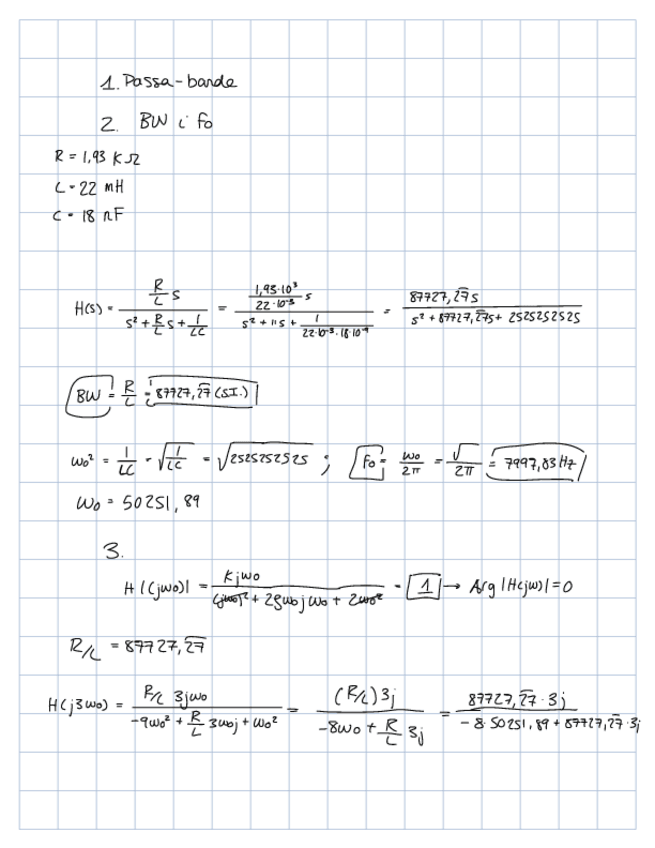 1. Passa-banda
2. BW i fo
R = 1,93 KΩ
L = 22 mH
C = 18 nF
H(s) = (R/L s) / (s² + R/L s + 1/LC) = (1,93·10³/22·10⁻³ s) / (s² + 11s + 1/(22·10⁻³·18·10⁻⁹)) = 87727,27s / (s² + 87727,27s + 2525252525)
BW = R/L = 87727,27 (S.I.)
ω₀² = 1/LC = √(1/LC) = √2525252525 ; Fo = ω₀/2π = √/2π = 7997,83 Hz
ω₀ = 50251,89
3.
H|(jω₀)| = Kjω₀ / ((jω₀)² + 2ξω₀jω₀ + 2ω₀²) = 1 → Arg |H(jω)| = 0
R/L = 87727,27
H(j3ω₀) = (R/L 3jω₀) / (-9ω₀² + R/L 3ω₀j + ω₀²) = (R/L)3j / (-8ω₀ + R/L 3j) = 87727,27·3j / (-8·50251,89 + 87727,27·3j)